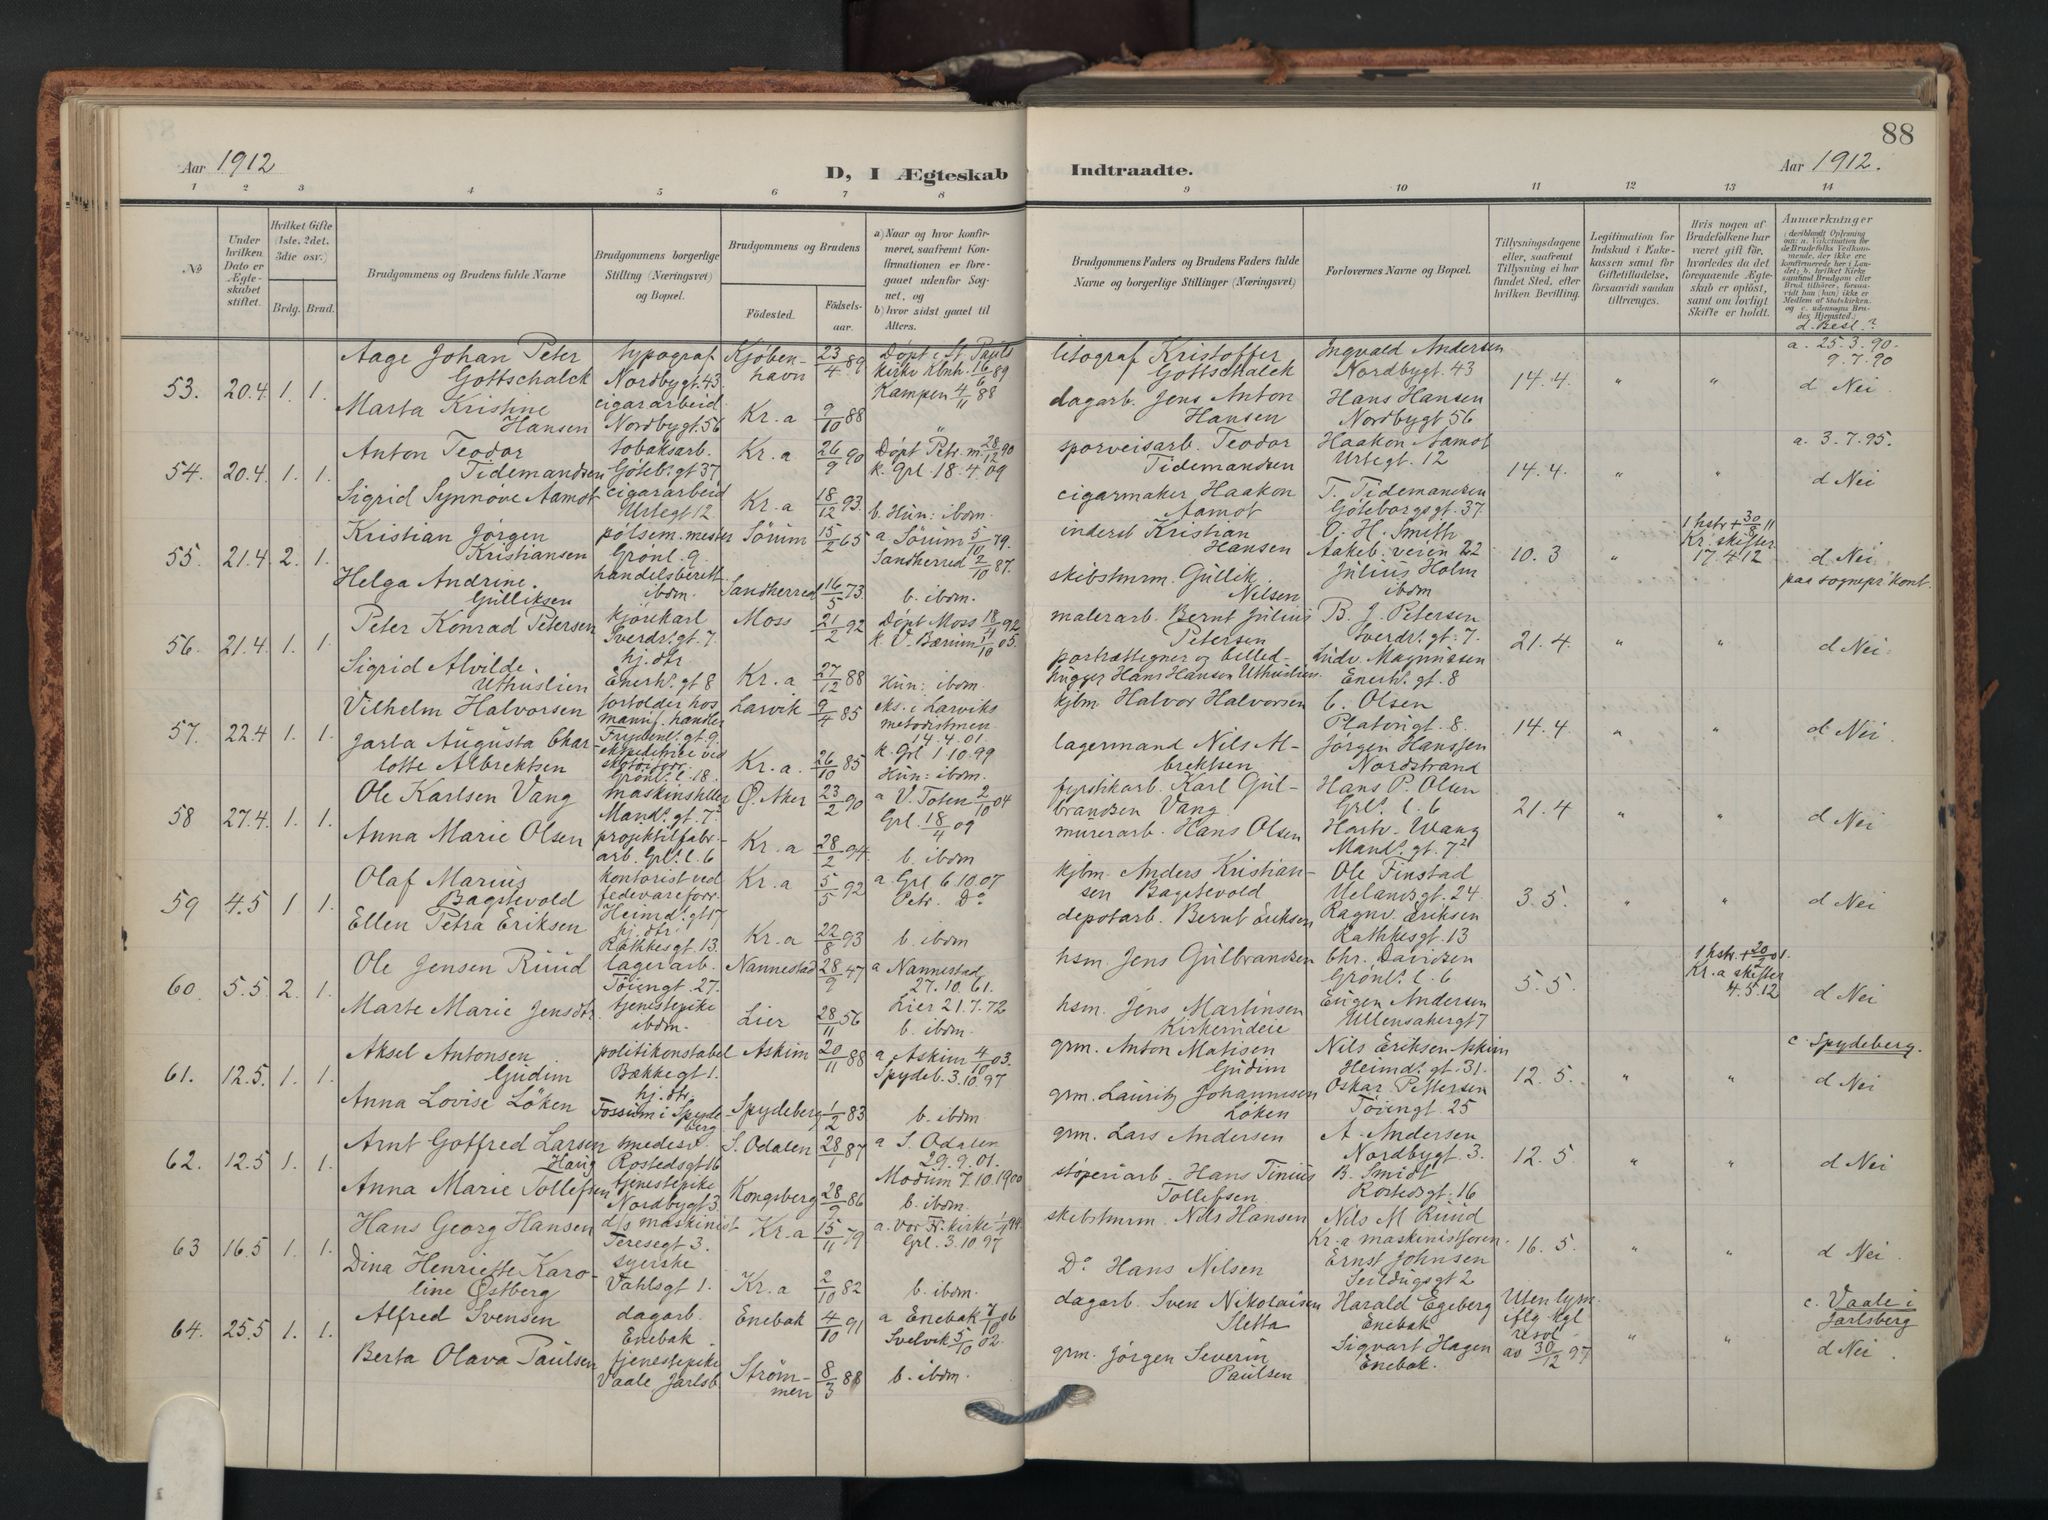 88
Aar 1912
D, I Ægteskab
Indtraadte.
Aar 1912.
1 2 3 4 5 6 7 8 9 10 11 12 13 14
No
Under hvilken Dato er Ægteskabet stiftet.
Hvilket Gifte (1ste, 2det, 3die osv.)
Brdg. Brud.
Brudgommens og Brudens fulde Navne
Brudgommens borgerlige Stilling (Næringsvei) og Bopæl.
Brudgommens og Brudens
Födested.
Födselsaar.
a) Naar og hvor konfirmeret, saafremt Konfirmationen er foregaaet udenfor Sognet, og
b) hvor sidst gaaet til Alters.
Brudgommens Faders og Brudens Faders fulde Navne og borgerlige Stillinger (Næringsvei)
Forlovernes Navne og Bopæl.
Tillysningsdagene eller, saafremt Tillysning ei har fundet Sted, efter hvilken Bevilling.
Legitimation for Indskud i Enkekassen samt for Giftetilladelse, forsaavidt saadan tiltrænges.
Hvis nogen af Brudefolkene har været gift för, hvorledes da det foregaaende Ægteskab er oplöst, samt om lovligt Skifte er holdt.
Anmærkninger
d. Besl.?
53. 20.4 1. 1.
Aage Johan Peter Gottschalck typograf Nordbygt. 43 Kjöbenhavn 23/4 89 Döpt i St. Pauls kirke Kbnh. 16/6 89
litograf Kristoffer Gottschalck Ingvald Andersen Nordbygt. 43 14.4. " " a. 25.3.90. 9.7.90 d Nei
Marta Kristine Hansen cigararbeid. Nordbygt. 56 Kr.a 9/10 88 Kampen 4/11 88
dagarb. Jens Anton Hansen Hans Hansen Nordbygt 56
54. 20.4 1. 1.
Anton Teodor Tidemandsen tobaksarb. Göteb. gt 37 Kr.a 26/9 90 Döpt Petr. m. 28/12 90 k. Grl 18.4.09
sporveisarb. Teodor Tidemandsen Haakon Aamot Urtegt. 12 14.4. " " a. 3.7.95. d Nei
Sigrid Synnöve Aamot cigararbeid Urtegt 12 Kr.a 18/12 93. b. Hun: ibdm.
cigarmaker Haakon Aamot T. Tidemandsen Göteborgsgt. 37.
55. 21.4 2. 1.
Kristian Jörgen Kristiansen pölsem.mester Grönl. 9 Sörum 15/2 65 a Sörum 5/10 79.
inderst Kristian Hansen O. H. Smith Aakeb. veien 22 10.3 " 1 hstr + 30/8 11 Kr. skifter 17.4.12 d Nei paa sognepr. kont.
Helga Andrine Gulliksen handelsberett. ibdm. Sandherred 16/5 73. Sandherred 2/10 87. b. ibdm.
skibstmrm. Gullik Nilsen Julius Holm ibdm
56. 21.4. 1. 1.
Peter Konrad Petersen kjörekarl Sverdr. gt. 7. Moss 21/2 92 Döpt Moss 18/4 92 k V. Bærum 1/10 05.
malerarb. Bernt Julius Petersen B. J. Petersen Sverdr. gt. 7. 21.4. " " d Nei.
Sigrid Alvilde Uthuslien hj. dtr. Enerh. gt 8 Kr.a 27/12 88 Hun: ibdm.
portrættegner og billedhugger Hans Hansen Uthuslien Ludv. Magnussen Enerh. gt. 8
57. 22.4 1. 1.
Vilhelm Halvorsen forfolder hos manuf. handler Frydenl. gt. 9. Larvik 9/4 85 eks. i Larviks metodistmen. 14.4.01.
kjbm Halvor Halvorsen C. Olsen Platousgt. 8. 14.4. " " d Nei
Jarla Augusta Charlotte Albrektsen ekspeditrice ved Grönl. l. 18. Kr.a. 26/10 85 k. Grl 1.10.99 Hun: ibdm.
lagermand Nils Albrektsen Jörgen Hanssen Nordstrand
58 27.4. 1. 1.
Ole Karlsen Vang Mand. gt. 7. Ö. Aker 23/2 90 a V. Toten 2/10 04
fyrstikarb. Karl Gulbrandsen Vang Hans P. Olsen Grl. l. 6 21.4 " " d Nei
Anna Marie Olsen projektilfabr. arb. Grl. l. 6 Kr.a 28/2 94. Grl. 18/4 09 b. ibdm
murerarb. Hans Olsen Hartv. Wang Mand. gt. 7
59 4.5 1 1.
Olaf Marius Bagstevold kontorist ved fedevareforr. Heimd. gt 17 Kr.a 5/5 92 a. Grl 6.10.07 Petr. Do
kjbm. Anders Kristiansen Bagstevold Ole Finstad Uelandsgt. 24 3.5. " " d Nei
Ellen Petra Eriksen hj. dtr. Rathkesgt. 13. Kr.a 22/8 93 b. ibdm
depotarb. Bernt Eriksen Ragnv. Eriksen Rathkesgt. 13
60. 5.5 2. 1.
Ole Jensen Ruud lagerarb. Töiengt. 27. Nannestad 28/9 47 a Nannestad 27.10.61.
hsm. Jens Gulbrandsen Chr. Davidsen Grönl. l. 6 5.5. 1 hstr. + 20/2 01. Kr.a skifter 4.5.12 d Nei
Marte Marie Jensdtr. tjenestepike ibdm. Lier 28/11 56 Lier 21.7.72 b. ibdm.
hsm. Jens Martinsen Kirkerudeie Eugen Andersen Ullensakergt 7
61. 12.5. 1. 1.
Aksel Antonsen Gudim politikonstabel Bækkegt 1. Askim 20/11 88 a Askim 4/10 03.
grm. Anton Matisen Gudim Nils Eriksen Askim Heimd. gt. 31. 12.5. " " c. Spydeberg. d Nei
Anna Lovise Löken hj. dtr. Fossum i Spydeberg Spydeberg 1/2 83 Spydeb. 3.10.97 b. ibdm
grm. Lauritz Johannesen Löken Oskar Pettersen Töiengt. 25
62. 12.5 1. 1.
Arnt Gotfred Larsen Haug smedesv. Rostedsgt 16 S. Odalen 28/1 87 a S. Odalen 29.9.01.
grm. Lars Andersen A. Andersen Nordbygt. 3. 12.5. " " d Nei
Anna Marie Tollefsen tjenestepike Nordbygt 3. Kongsberg 28/9 86 Modum 7.10.1900 b. ibdm.
stöperiarb. Hans Tinius Tollefsen B. Smidt Rostedsgt. 16
63 16.5 1. 1.
Hans Georg Hansen d/s maskinist Teresegt 3. Kr.a 15/11 79 a. Vor Fr. kirke 1/4 94.
skibstmrm. Nils Hansen Nils M Ruud Kr.a maskinistforen. 16.5. " " d Nei
Dina Henriette Karoline Östberg syerske Vahlsgt 1. Kr.a 2/10 82 Grl. 3.10.97 b. ibdm.
Do Hans Nilsen Ernst Johnsen Seildugsgt 2
64. 25.5 1. 1.
Alfred Svensen dagarb. Enebak Enebak 4/10 91 a Enebak 7/10 06
dagarb. Sven Nikolaisen Sletta Harald Egeberg Enebak Uten lysn. Alg kgl Resol av 30/12 97 " " c. Vaale i Jarlsberg d Nei.
Berta Olava Paulsen tjenestepike Vaale Jarlsb. Strömmen 8/3 88 Svelvik 5/10 02. b. ibdm.
grm. Jörgen Severin Paulsen Sigvart Hagen Enebak.